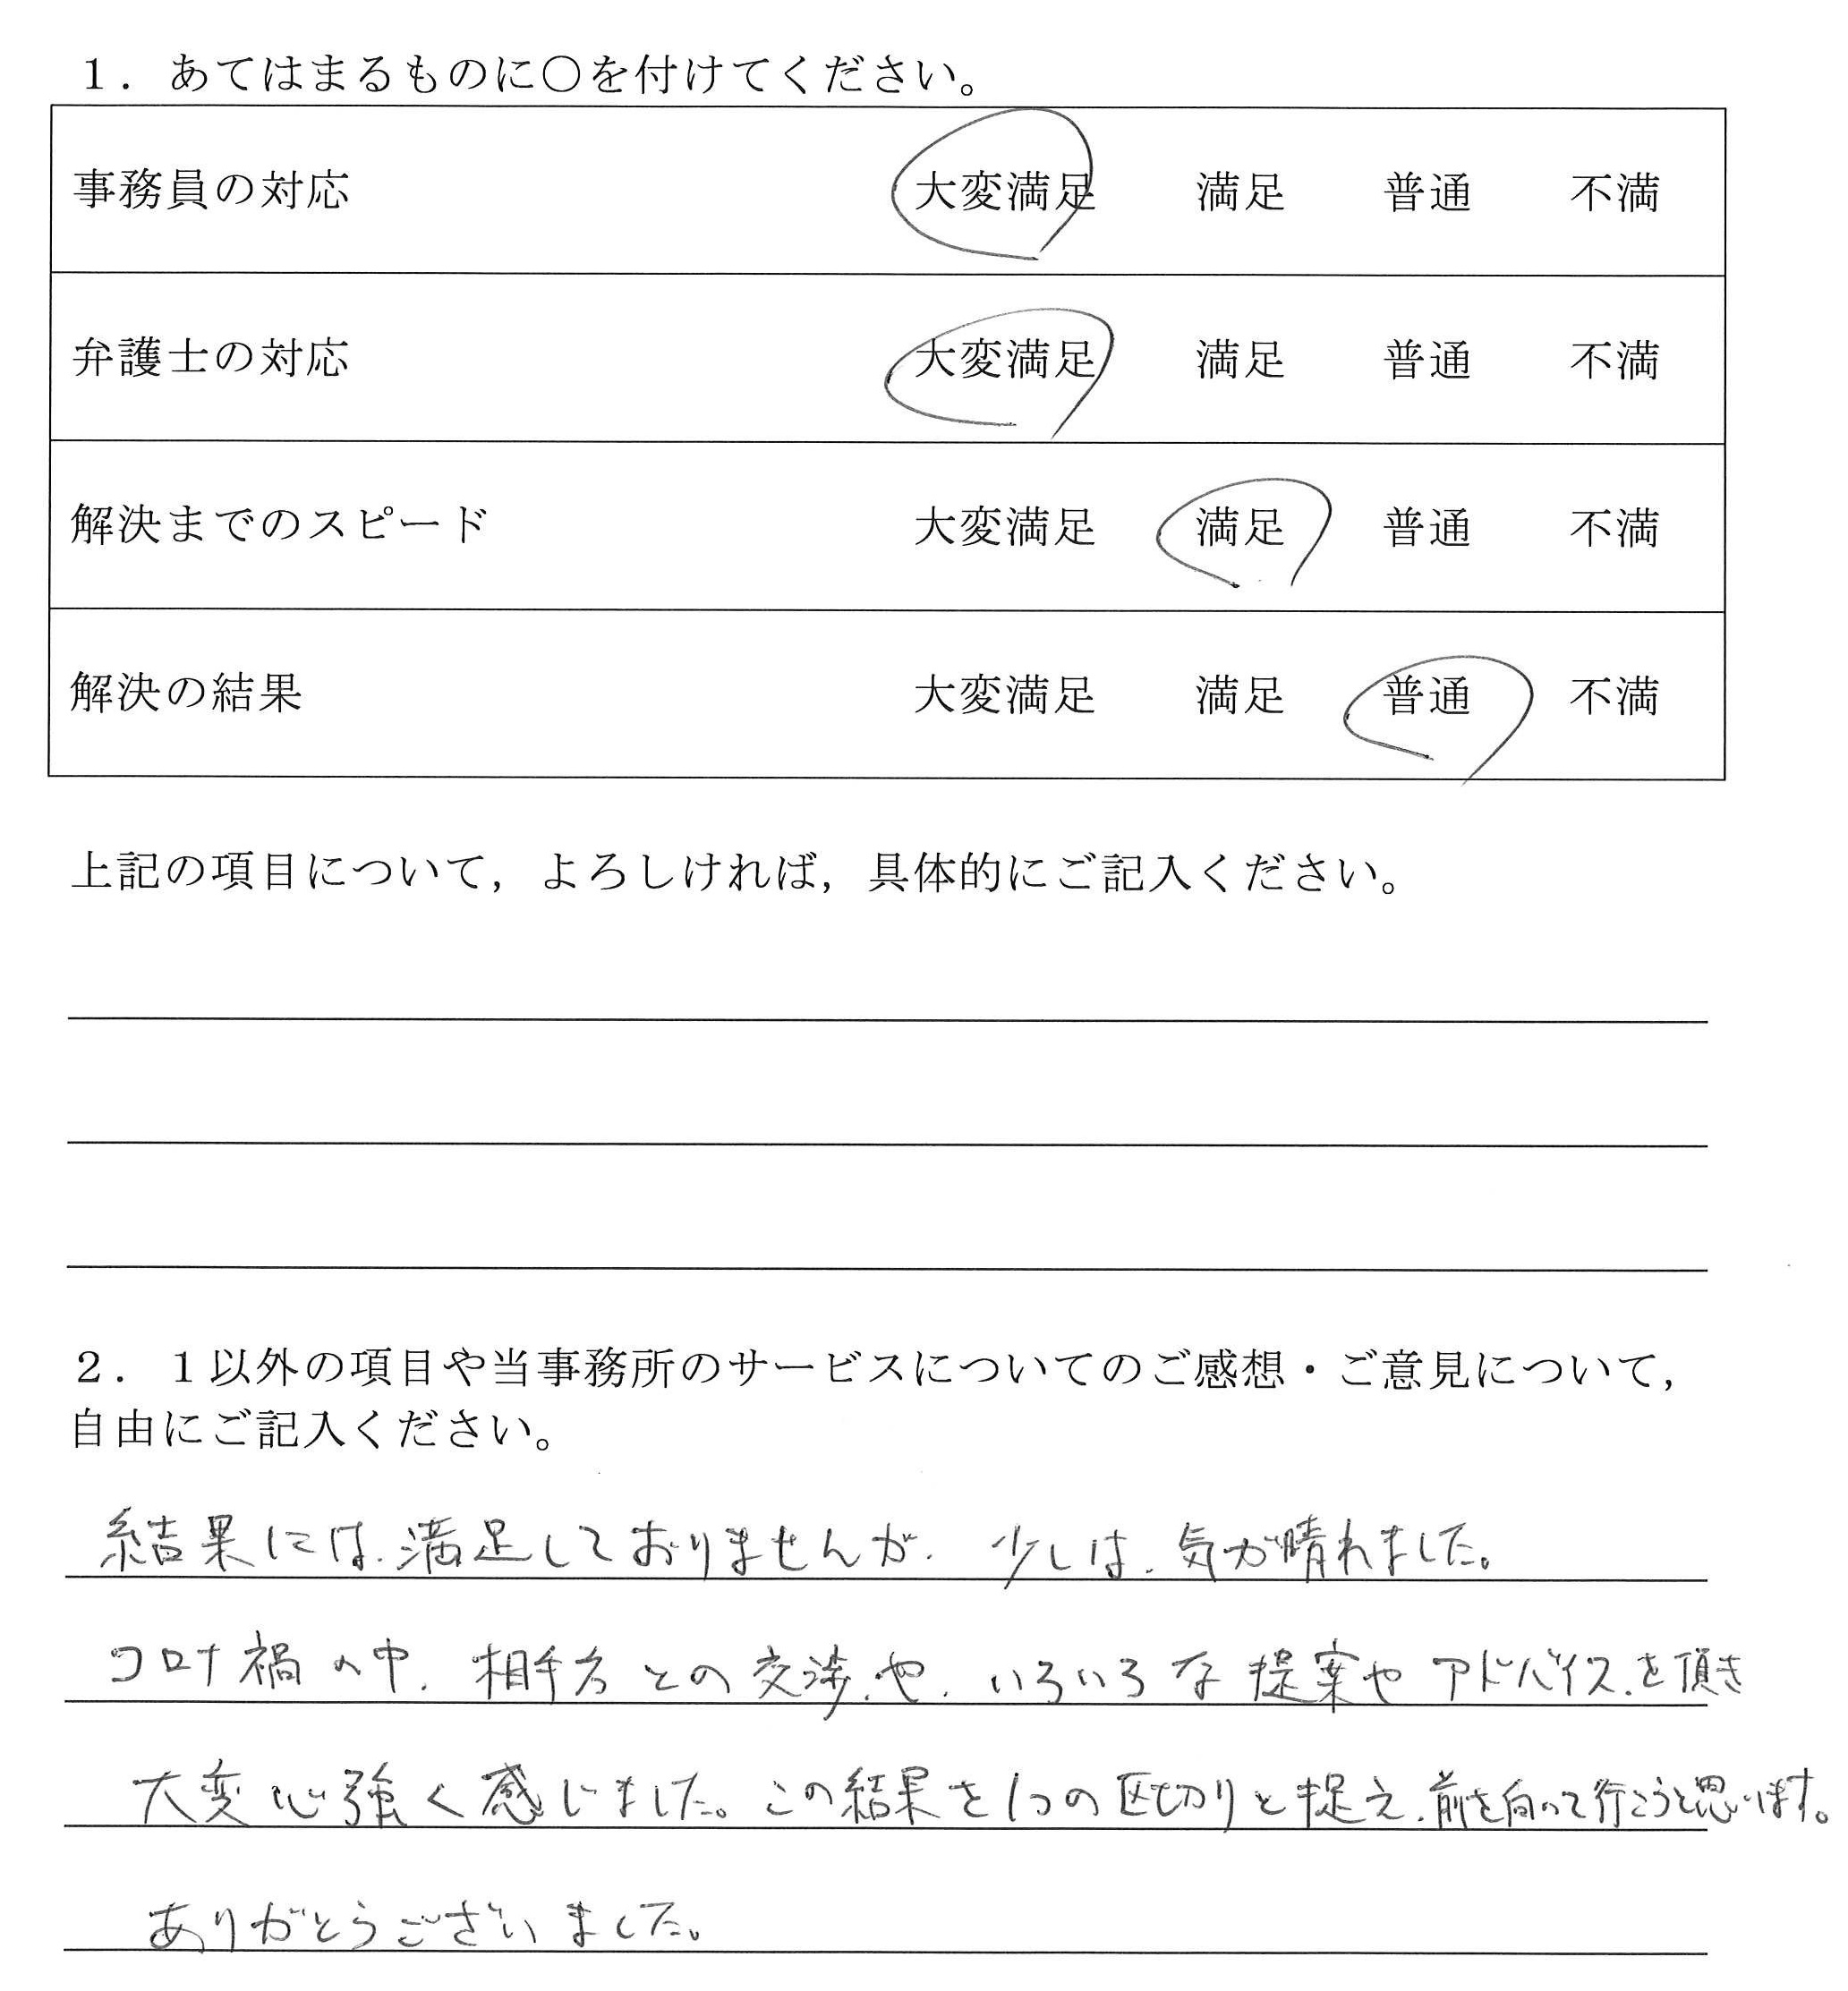 １．あてはまるものに○を付けてください。
事務員の対応 大変満足 満足 普通 不満
弁護士の対応 大変満足 満足 普通 不満
解決までのスピード 大変満足 満足 普通 不満
解決の結果 大変満足 満足 普通 不満
上記の項目について，よろしければ，具体的にご記入ください。
２．１以外の項目や当事務所のサービスについてのご感想・ご意見について，
自由にご記入ください。
結果には、満足しておりませんが、少しは、気が晴れました。
コロナ禍の中、相手方との交渉、や、いろいろな提案やアドバイス、を頂き
大変心強く感じました。この結果を1つの区切りと捉え、前を向って行こうと思います。
ありがとうございました。